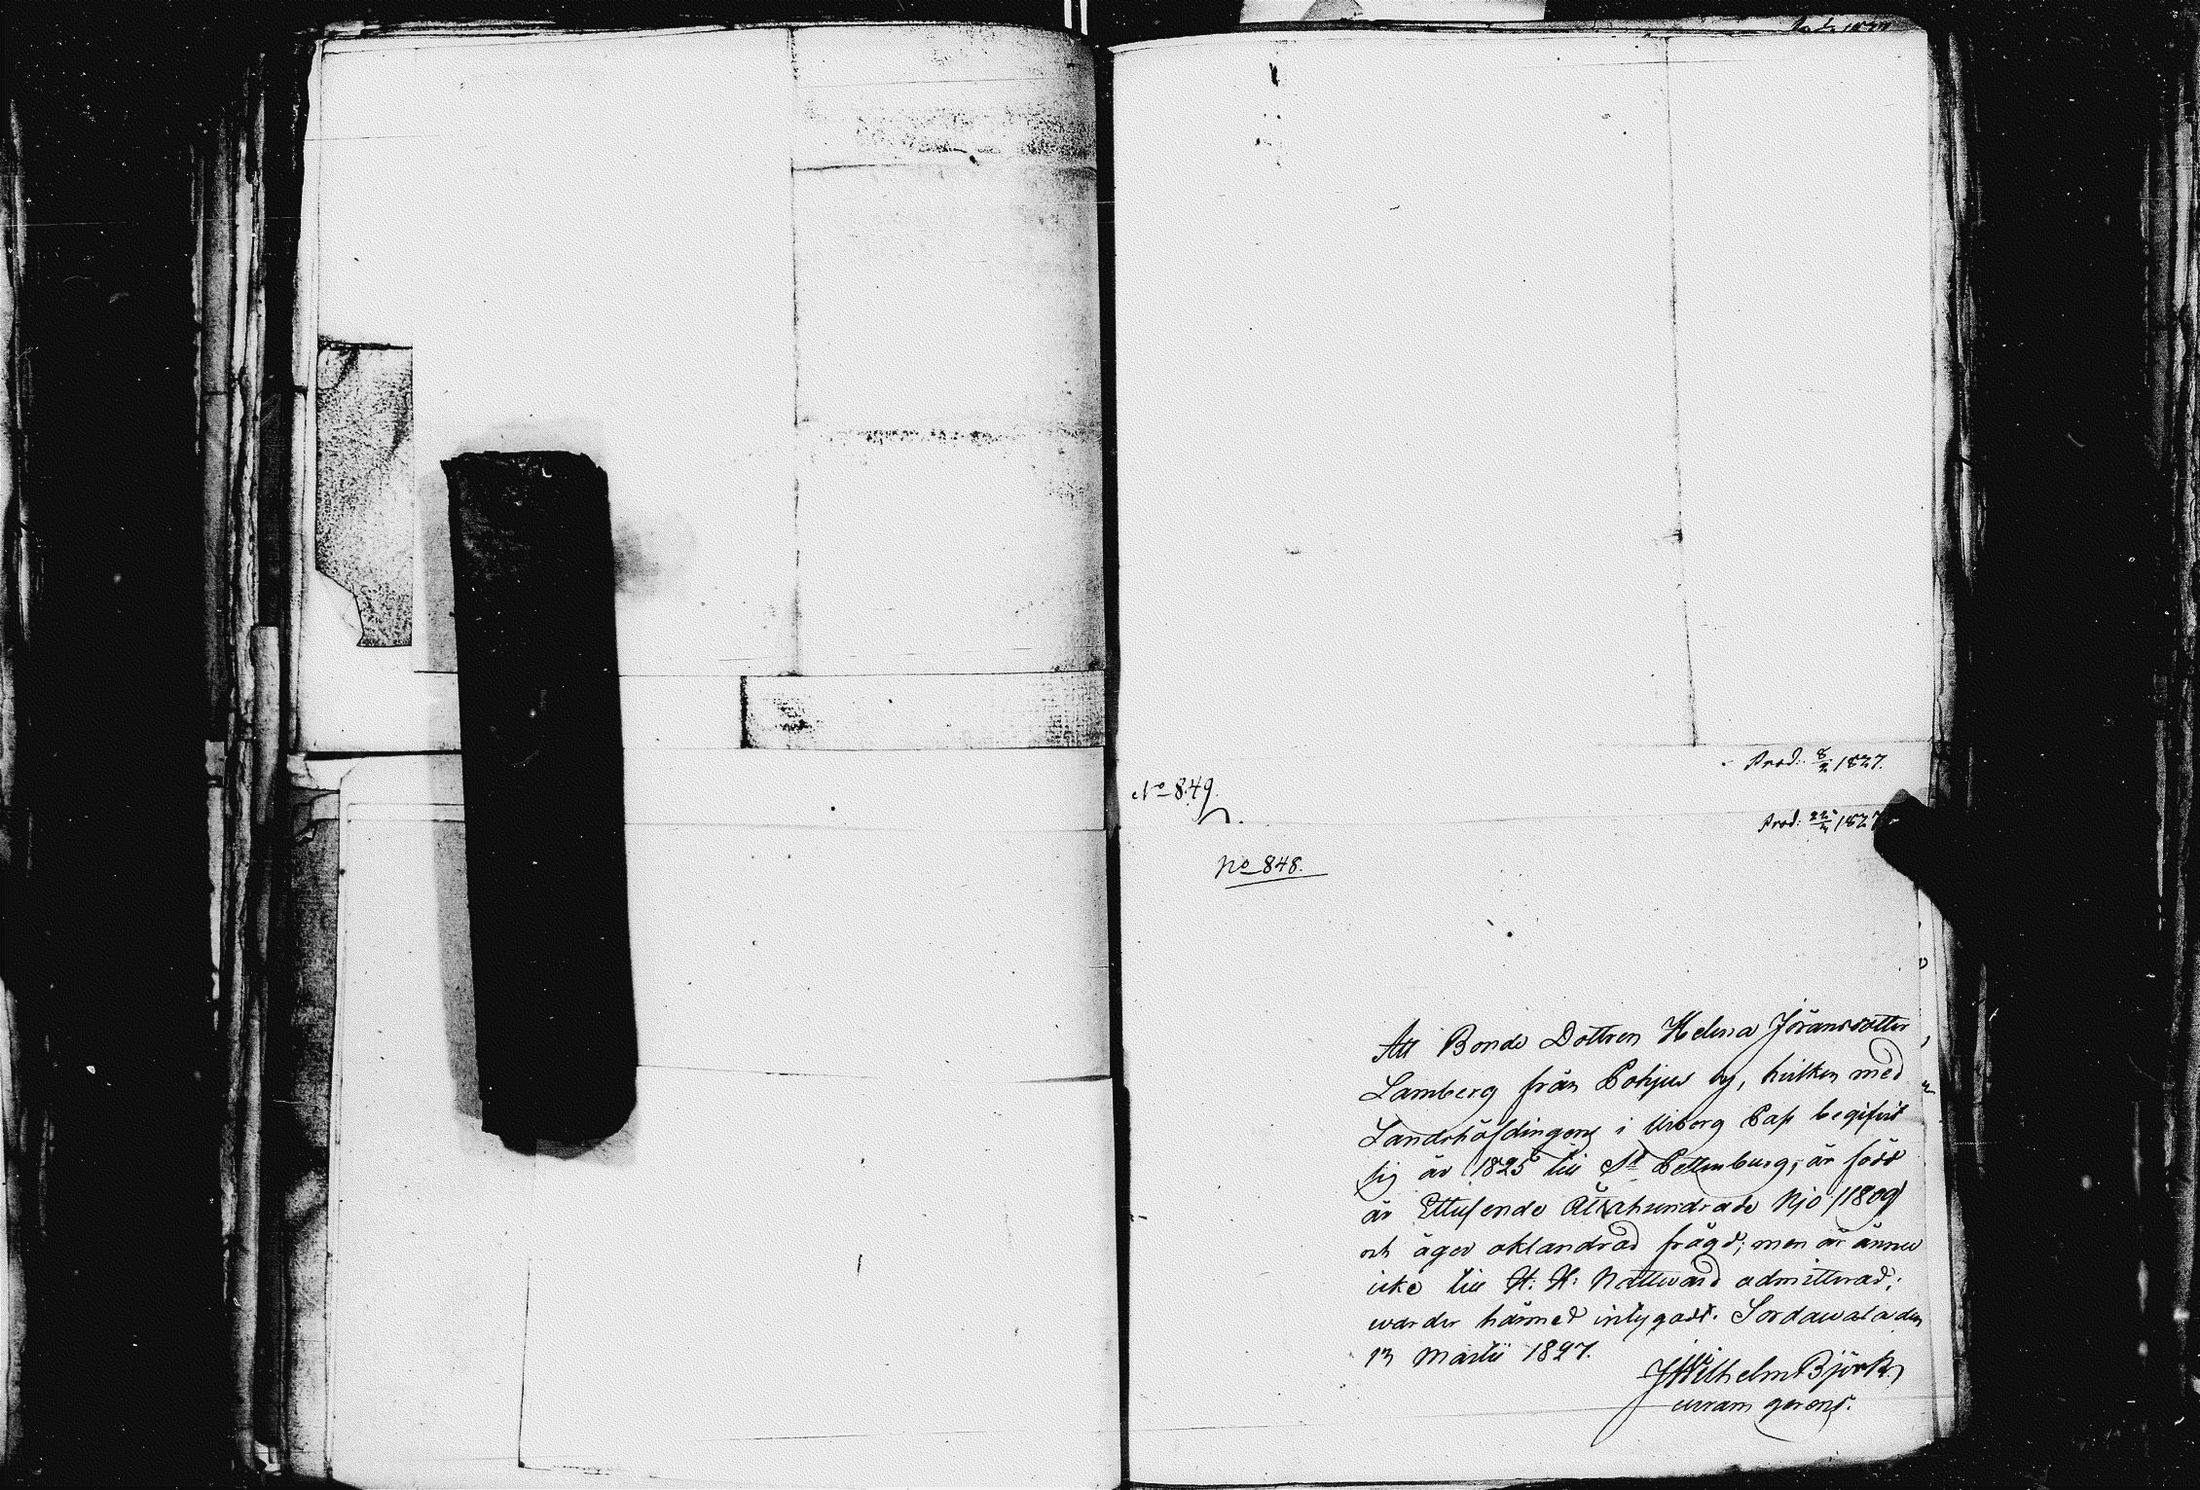 Prod. 8/2 1827.
No 849.
Prod: 22/2 1827
No 848.
Att Bonde Dottren Helena Jöransdotter
Lamberg från Pohjus by, hvilken med
Landshöfdingens i Wiborg Pass begifvit
sig år 1825 till St Pettersburg, är född
år Ettusende Åttahundrade Njo /1809/
och äger oklandrad frägd; men är ännu
icke till H. H: Nattward admitterad;
warder härmed intygadt. Sordawala den
13 Martii 1827.
JWilhelm Björk
curam gerens.